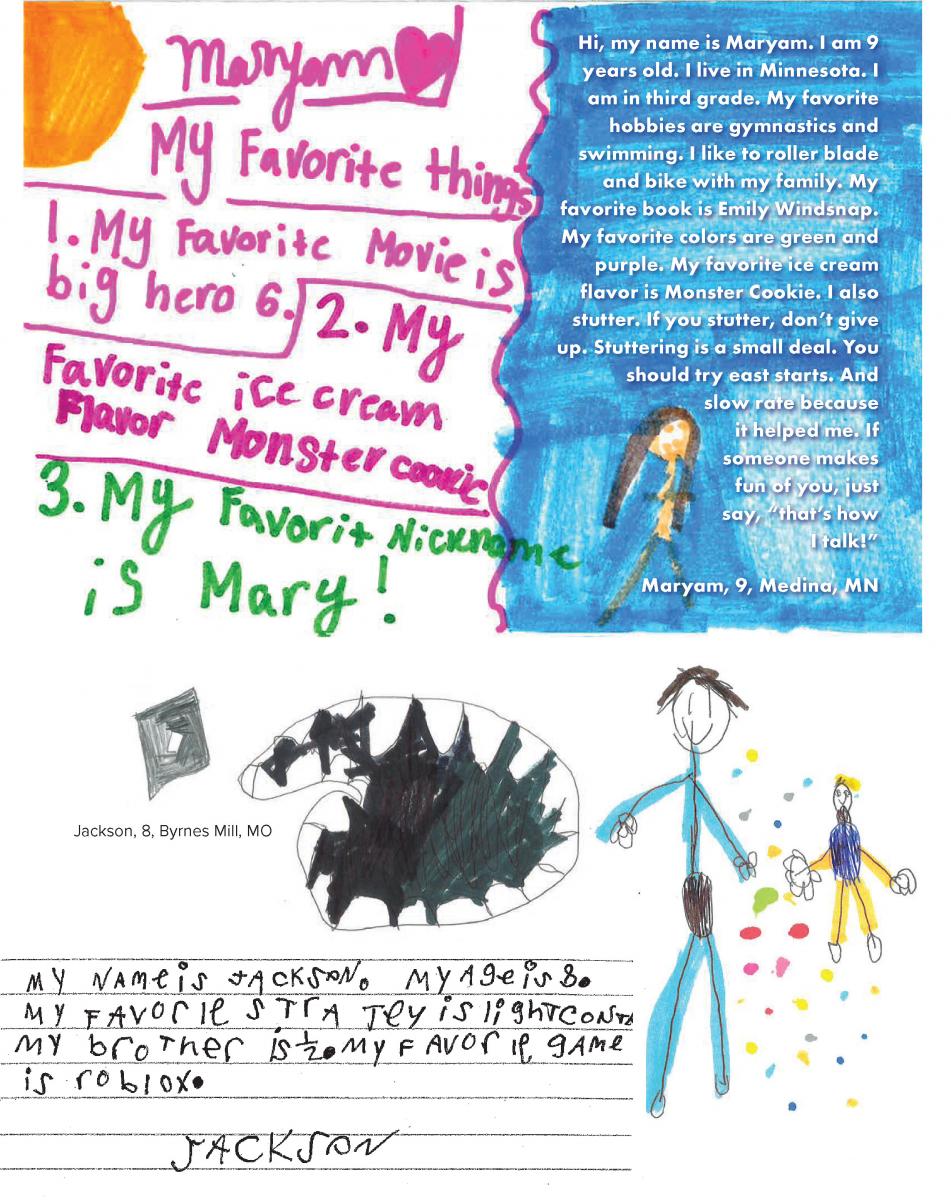 Maryam
My Favorite things
1. My Favorite Movie is
big hero 6.
2. My
Favorite ice cream
Flavor Monster cookie
3. My Favorit Nickname
is Mary!
Hi, my name is Maryam. I am 9
years old. I live in Minnesota. I
am in third grade. My favorite
hobbies are gymnastics and
swimming. I like to roller blade
and bike with my family. My
favorite book is Emily Windsnap.
My favorite colors are green and
purple. My favorite ice cream
flavor is Monster Cookie. I also
stutter. If you stutter, don't give
up. Stuttering is a small deal. You
should try east starts. And
slow rate because
it helped me. If
someone makes
fun of you, just
say, “that's how
I talk!”
Maryam, 9, Medina, MN
Jackson, 8, Byrnes Mill, MO
MY NAMe is JACKSON. MY Age is 8.
MY FAVOrIe STRATJey is lighTCONTA
MY broTHer is ½. MY FAVOrIe gAMe
is roblox.
JACKSON